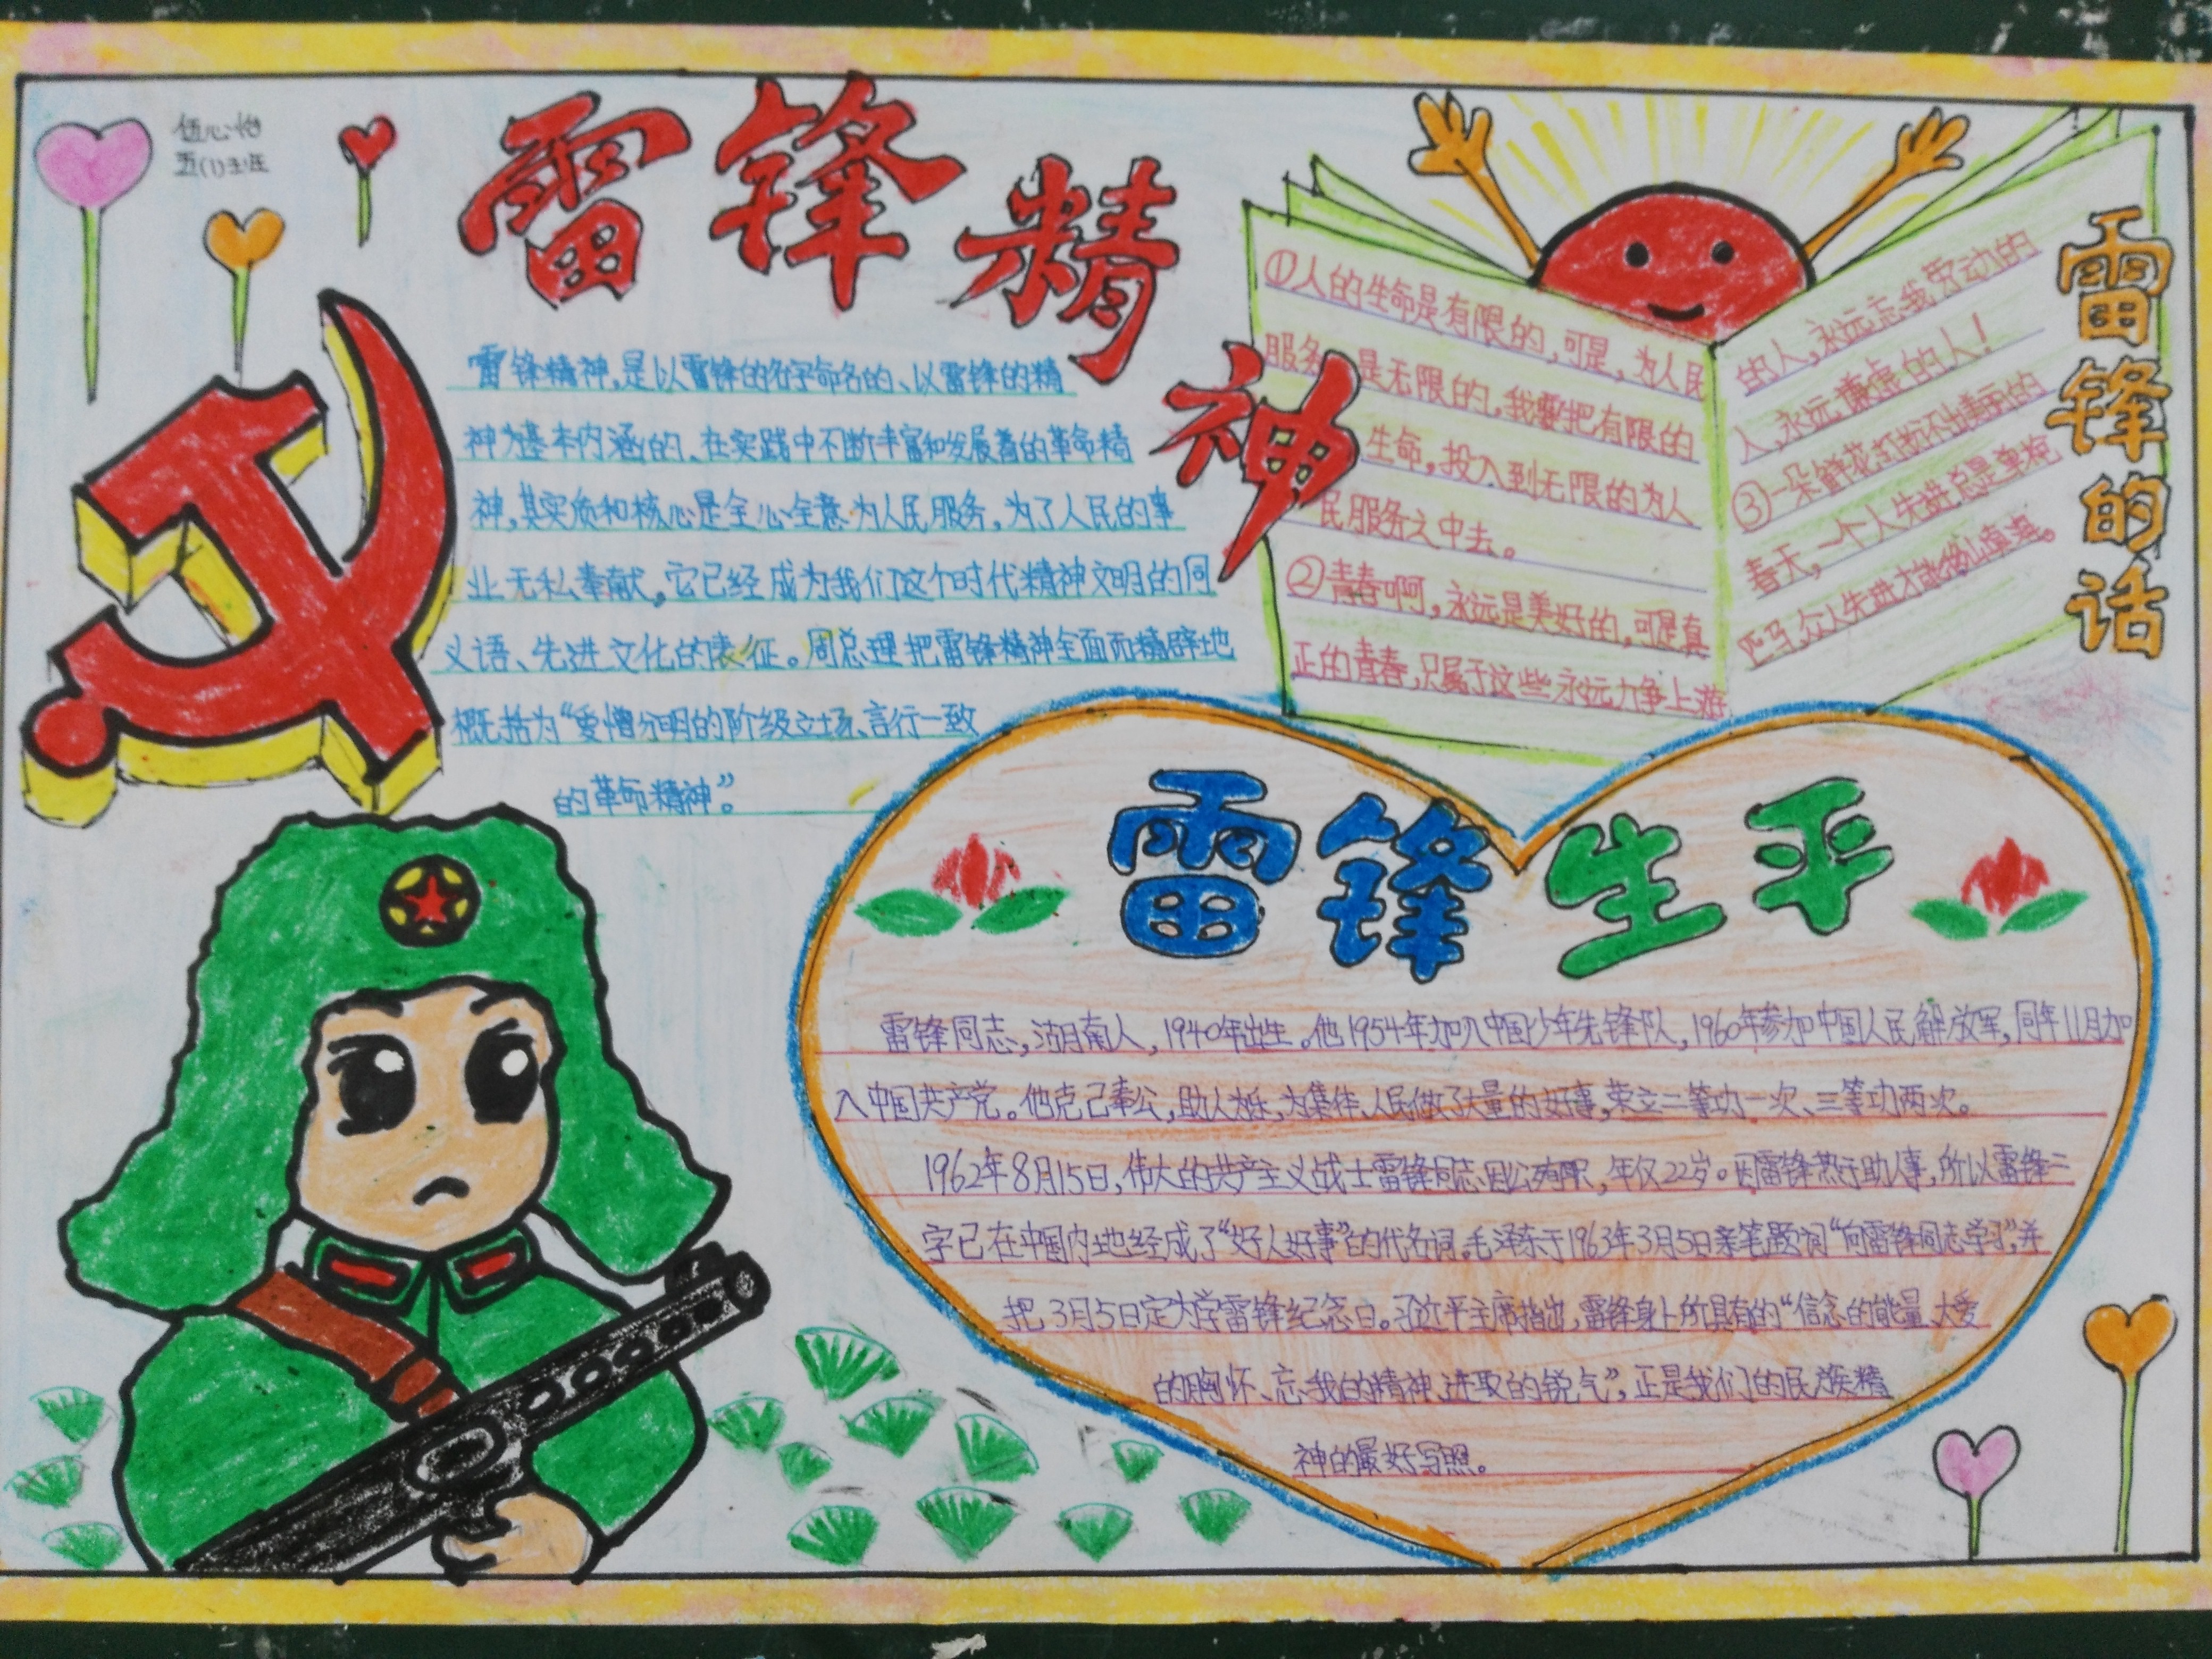 伍心怡
五(1)班
雷锋精神
雷锋精神,是以雷锋的名字命名的、以雷锋的精
神为基本内涵的、在实践中不断丰富和发展着的革命精
神,其实质和核心是全心全意为人民服务,为了人民的事
业无私奉献。它已经成为我们这个时代精神文明的同
义语、先进文化的表征。周总理把雷锋精神全面而精辟地
概括为“爱憎分明的阶级立场、言行一致
的革命精神”。
雷锋的话
①人的生命是有限的,可是,为人民
服务是无限的,我要把有限的
生命,投入到无限的为人
民服务之中去。
②青春啊,永远是美好的,可是真
正的青春,只属于这些永远力争上游
的人,永远忘我劳动的
人,永远谦虚的人!
③一朵鲜花打扮不出美丽的
春天,一个人先进总是单枪
匹马,众人先进才能移山填海。
雷锋生平
雷锋同志,湖南人,1940年出生。他1954年加入中国少年先锋队,1960年参加中国人民解放军,同年11月加
入中国共产党。他克己奉公,助人为乐,为集体、人民做了大量的好事,荣立二等功一次、三等功两次。
1962年8月15日,伟大的共产主义战士雷锋同志因公殉职,年仅22岁。因雷锋热于助人事,所以雷锋三
字已在中国内地经成了“好人好事”的代名词。毛泽东于1963年3月5日亲笔题词“向雷锋同志学习”,并
把3月5日定为学雷锋纪念日。习近平主席指出,雷锋身上所具有的“信念的能量、大爱
的胸怀、忘我的精神、进取的锐气”,正是我们的民族精
神的最好写照。